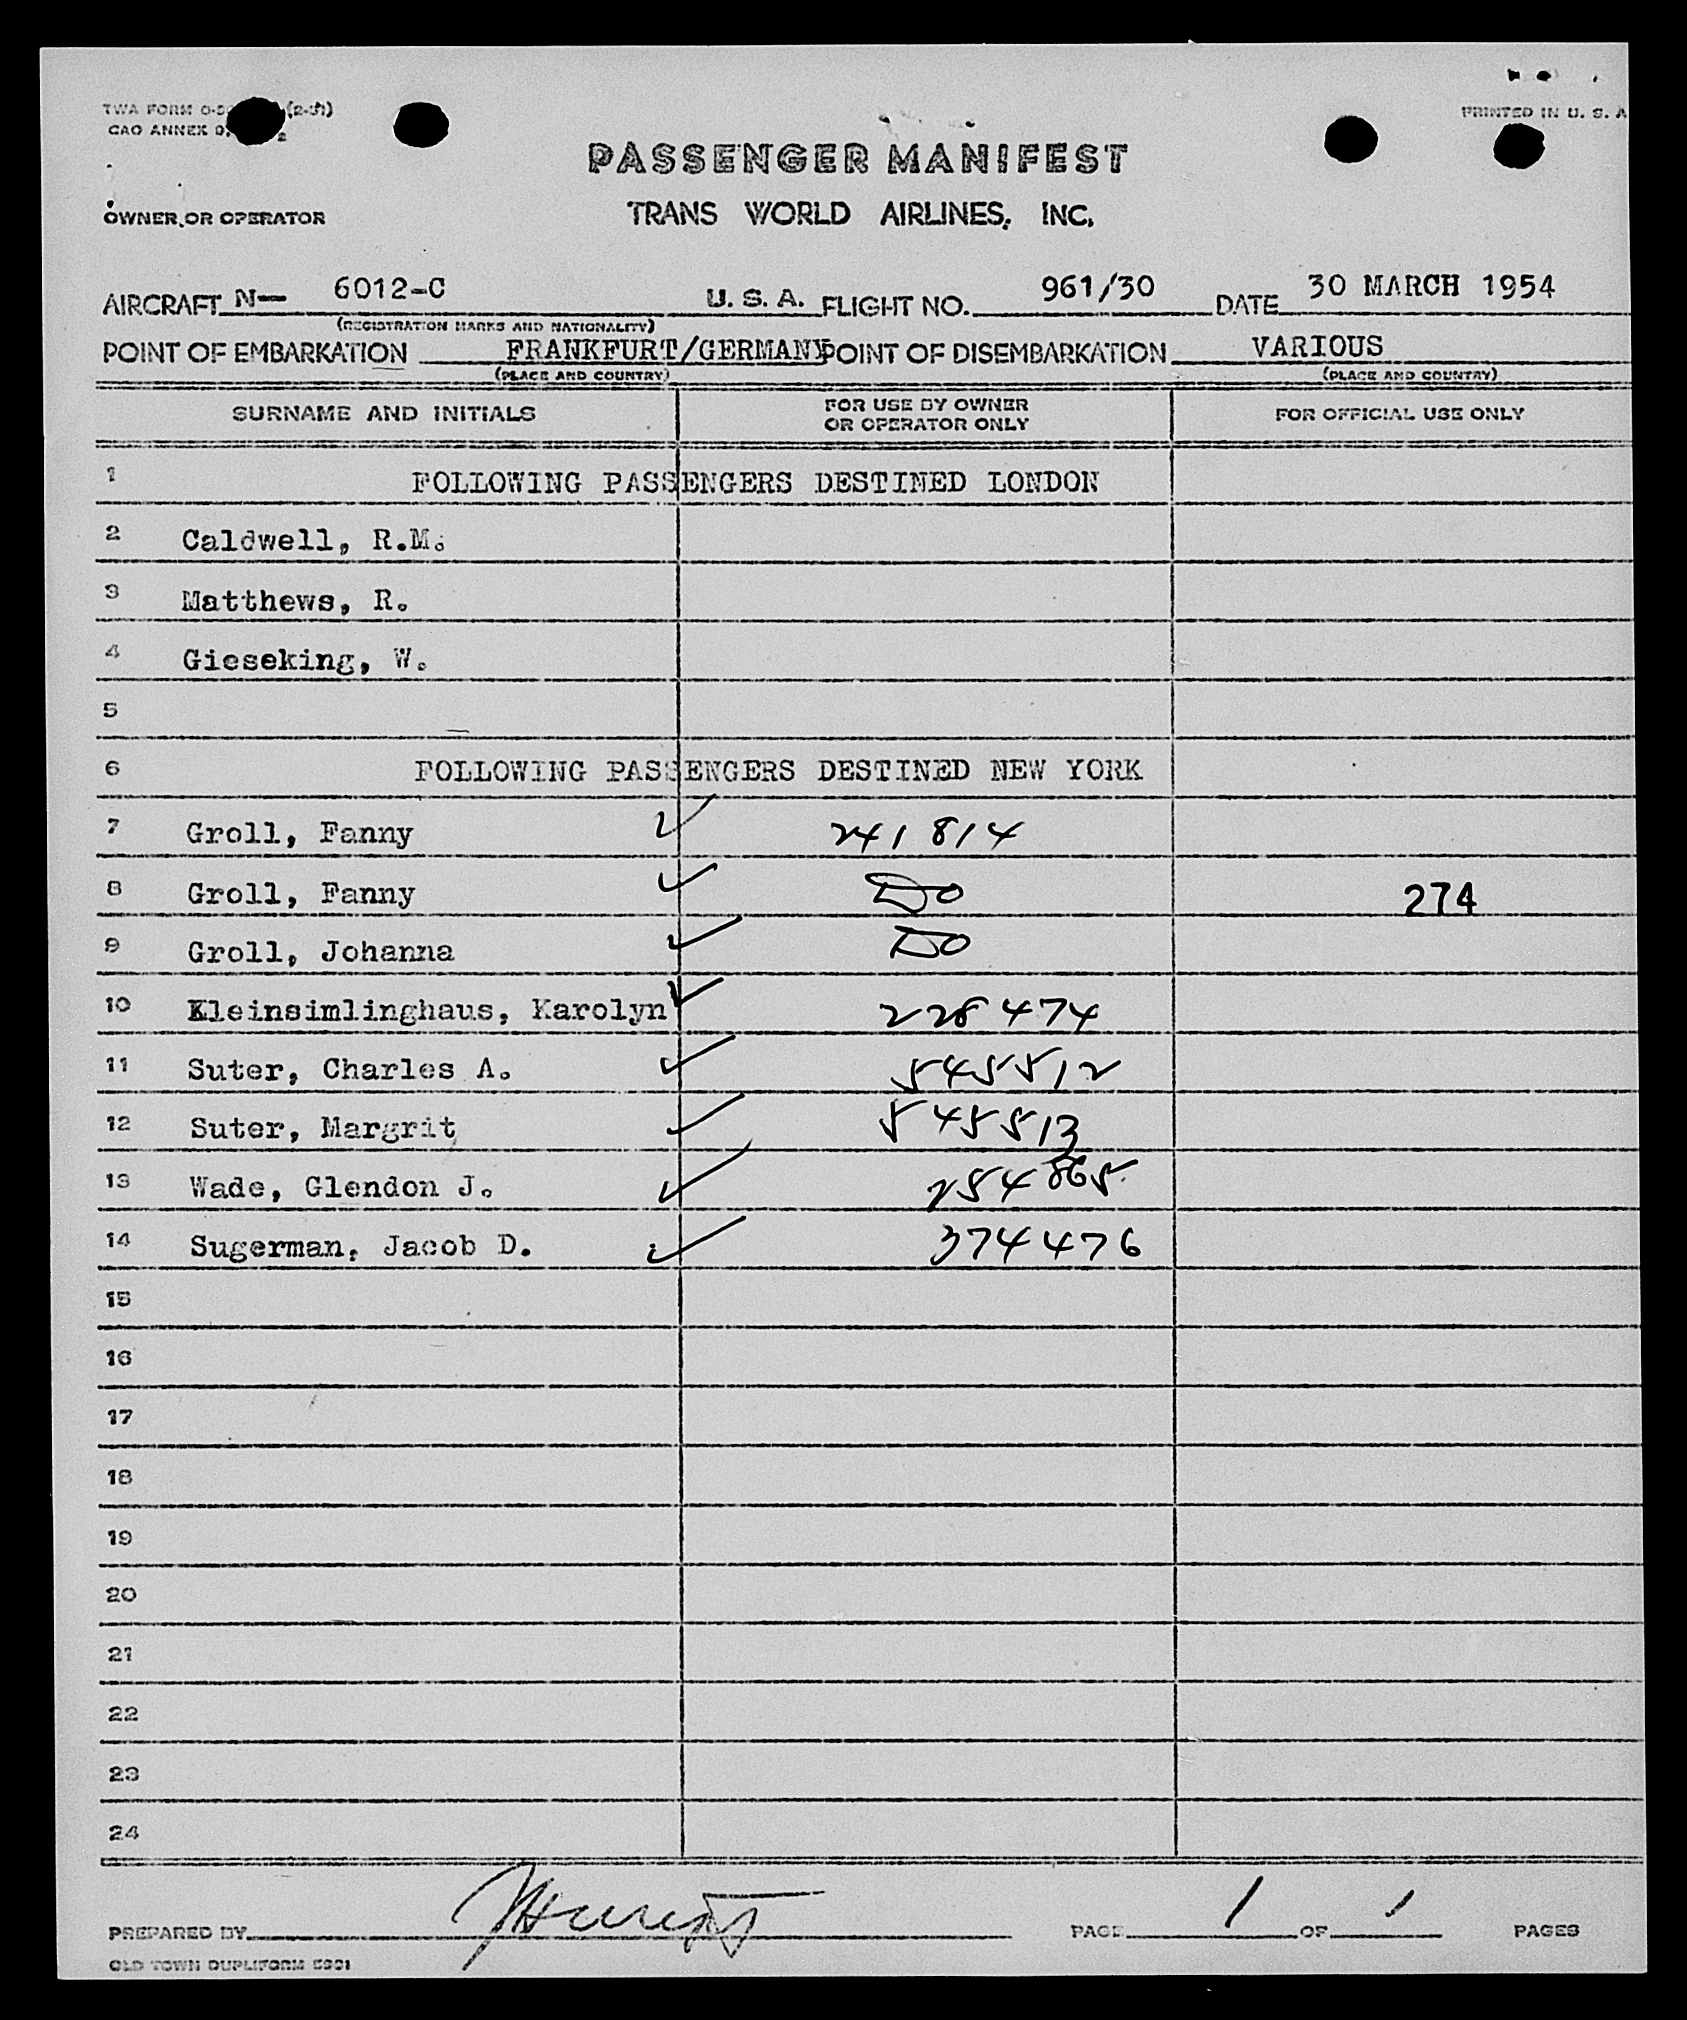 TWA FORM O- (2-51)
CAO ANNEX 9, 2
PRINTED IN U. S. A
PASSENGER MANIFEST
OWNER OR OPERATOR
TRANS WORLD AIRLINES, INC.
AIRCRAFT N— 6012-C U. S. A. FLIGHT NO. 961/30 DATE 30 MARCH 1954
(REGISTRATION MARKS AND NATIONALITY)
POINT OF EMBARKATION FRANKFURT/GERMANY POINT OF DISEMBARKATION VARIOUS
(PLACE AND COUNTRY) (PLACE AND COUNTRY)
SURNAME AND INITIALS FOR USE BY OWNER OR OPERATOR ONLY FOR OFFICIAL USE ONLY
1 FOLLOWING PASSENGERS DESTINED LONDON
2 Caldwell, R.M.
3 Matthews, R.
4 Gieseking, W.
5
6 FOLLOWING PASSENGERS DESTINED NEW YORK
7 Groll, Fanny ✓ 241814
8 Groll, Fanny ✓ DO 274
9 Groll, Johanna ✓ DO
10 Kleinsimlinghaus, Karolyn ✓ 228474
11 Suter, Charles A. ✓ 545512
12 Suter, Margrit ✓ 545513
13 Wade, Glendon J. ✓ 254865
14 Sugerman, Jacob D. ✓ 374476
15
16
17
18
19
20
21
22
23
24
PREPARED BY PAGE 1 OF 1 PAGES
OLD TOWN DUPLIFORM